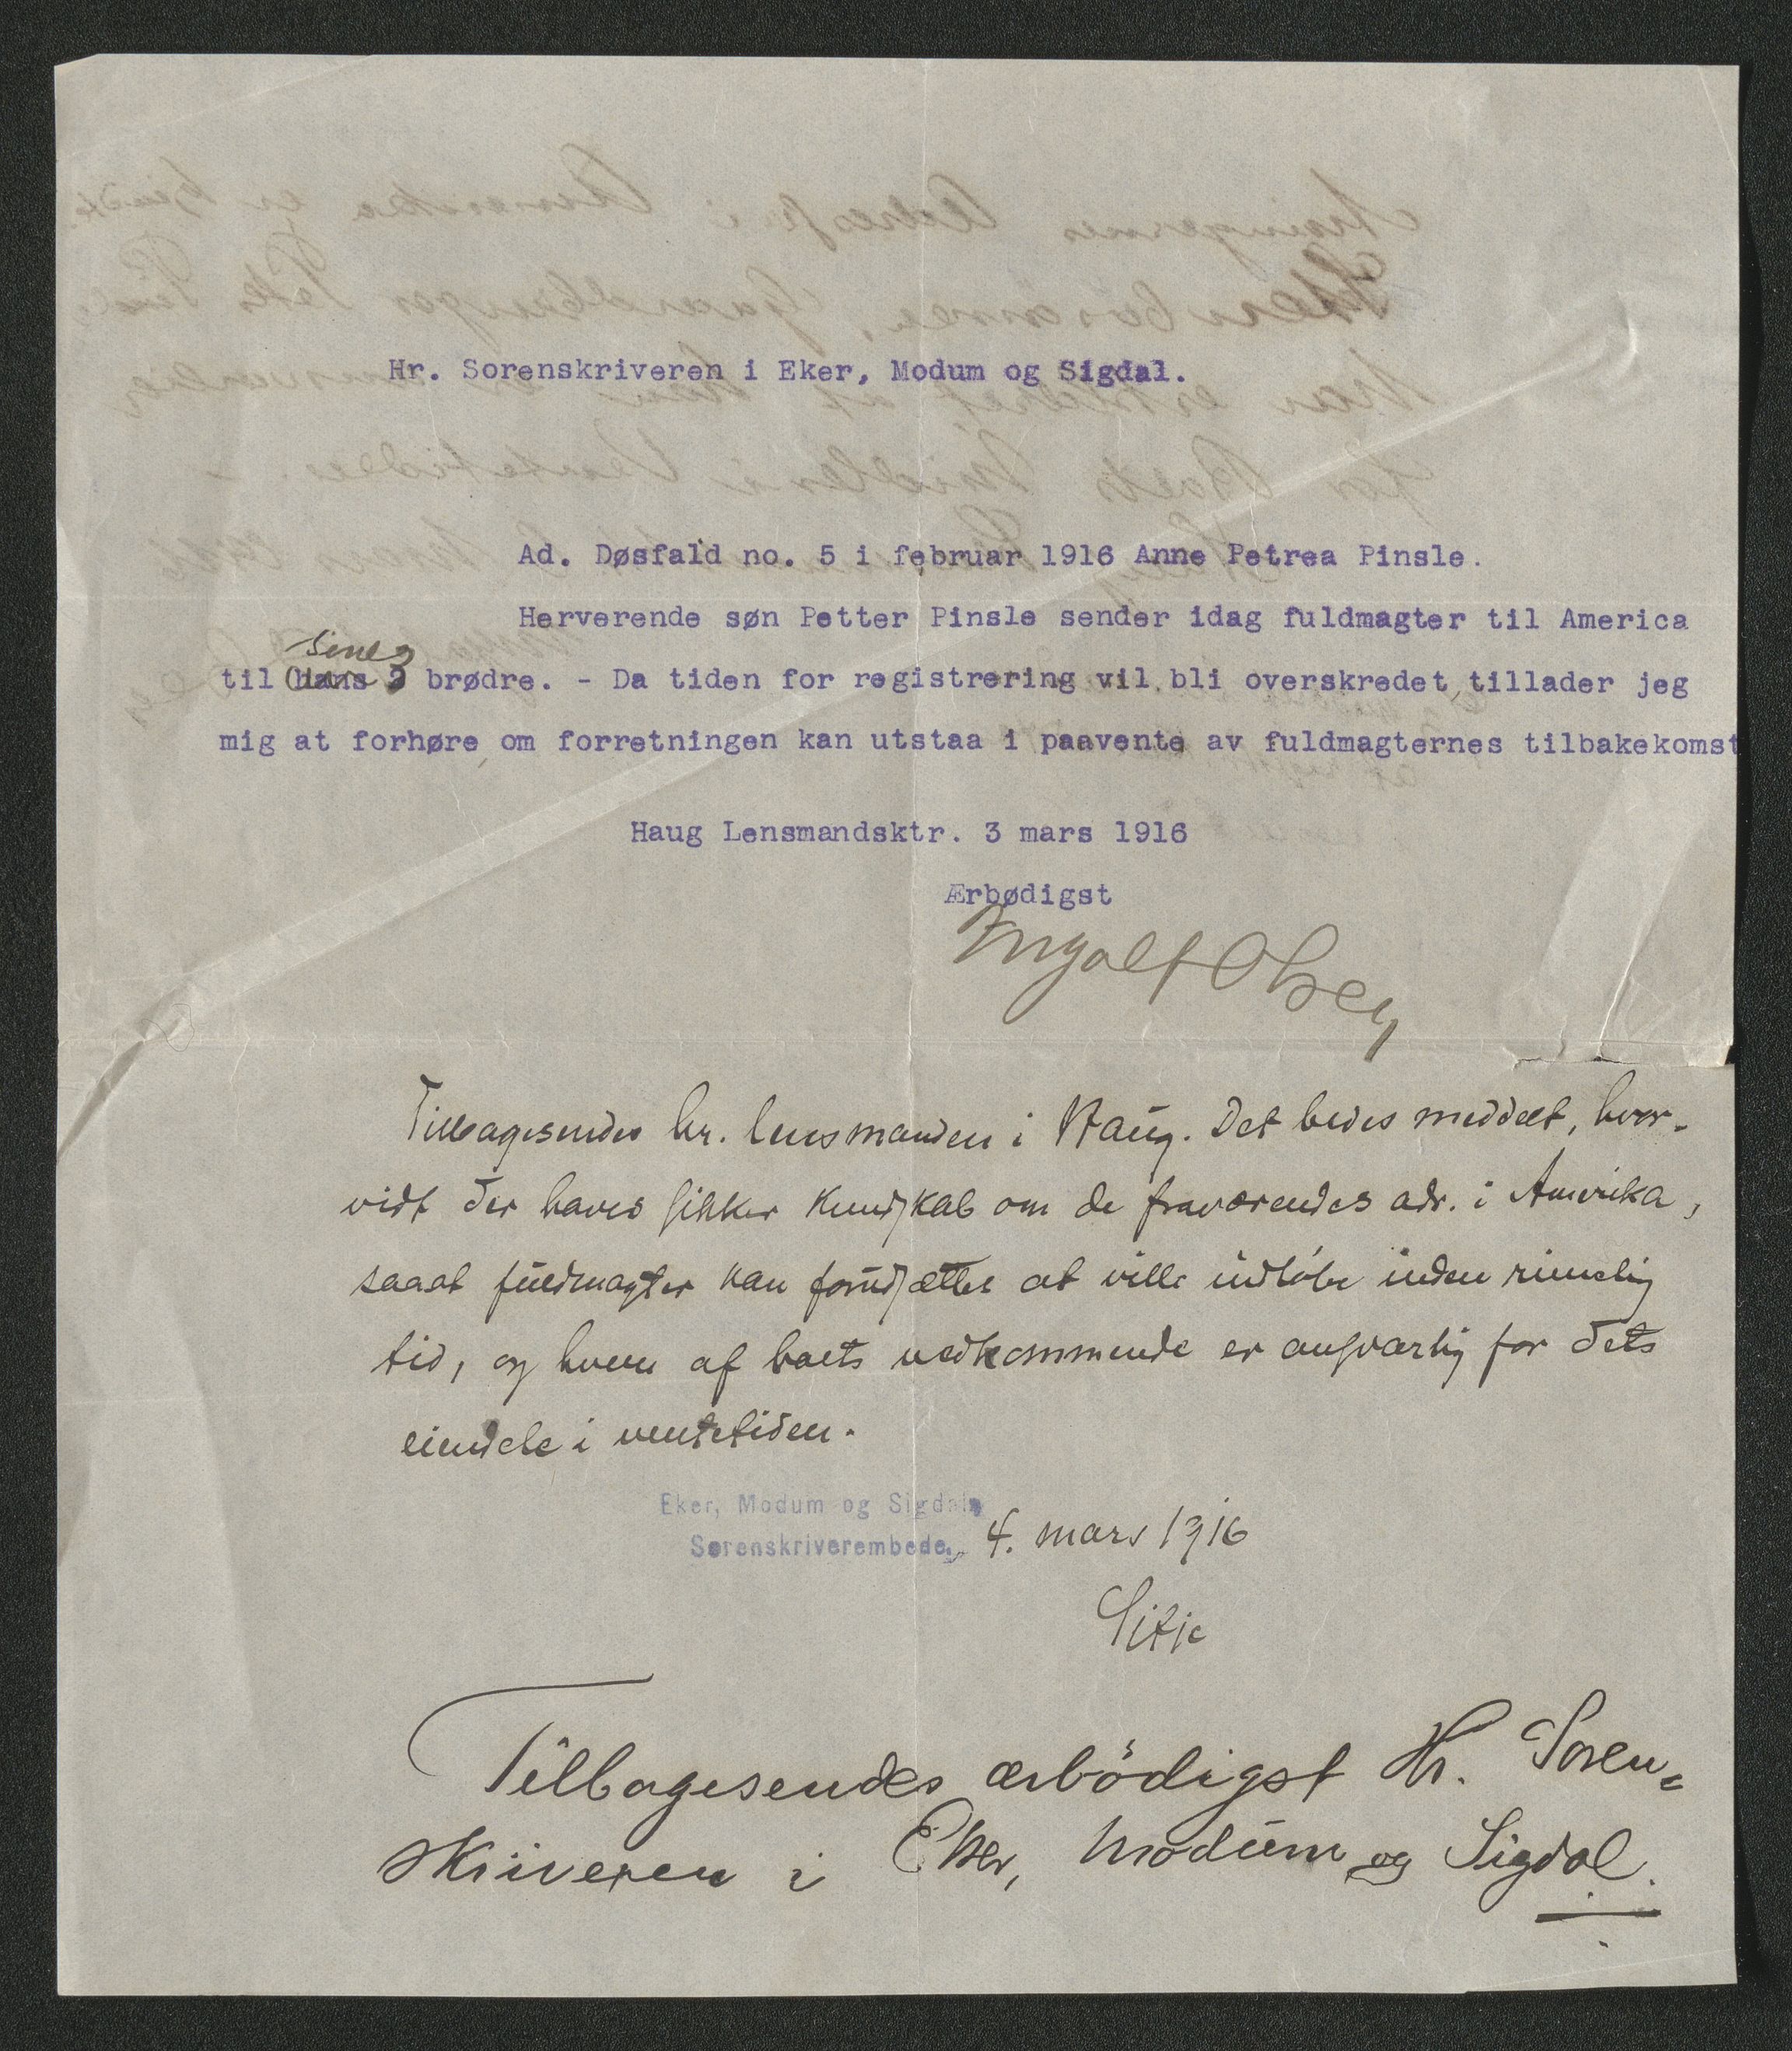 Hr. Sorenskriveren i Eker, Modum og Sigdal.
Ad. Døsfald no. 5 i februar 1916 Anne Petrea Pinsle.
Herverende søn Petter Pinsle sender idag fuldmagter til America
sine
til hans 2 brødre. - Da tiden for registrering vil bli overskredet, tillader jeg
mig at forhøre om forretningen kan utstaa i paavente av fuldmagternes tilbakekomst
Haug Lensmandsktr. 3 mars 1916
Ærbødigst
Ingolf Olsen
Tilbagesendes hr. lensmanden i Haug. Det bedes meddelt, hvor-
vidt der haves sikker kundskab om de fraværendes adr. i Amerika,
saaat fuldmagter kan forudsættes at ville indløbe inden rimelig
tid, og hvem af boets vedkommende er ansvarlig for dets
eiendele i ventetiden.
Eker, Modum og Sigdals
Sorenskriverembede, 4. mars 1916
Tilbagesendes ærbödigst Hr. Soren-
skriveren i Eker, Modum og Sigdal.